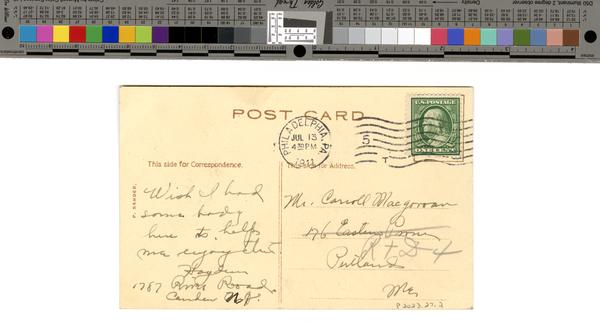 POST CARD
U.S. POSTAGE
ONE CENT
PHILADELPHIA, PA.
JUL 13
4 PM
1911
5
T
This side for Correspondence.
This side for Address.
Wish I had
some body
here to help
me enjoy this
1787 River Road
Camden N.J.
Mr. Carroll Macgowan
76 Eastern Prom
R + D 4
Portland
Me,
P 2023.27.2